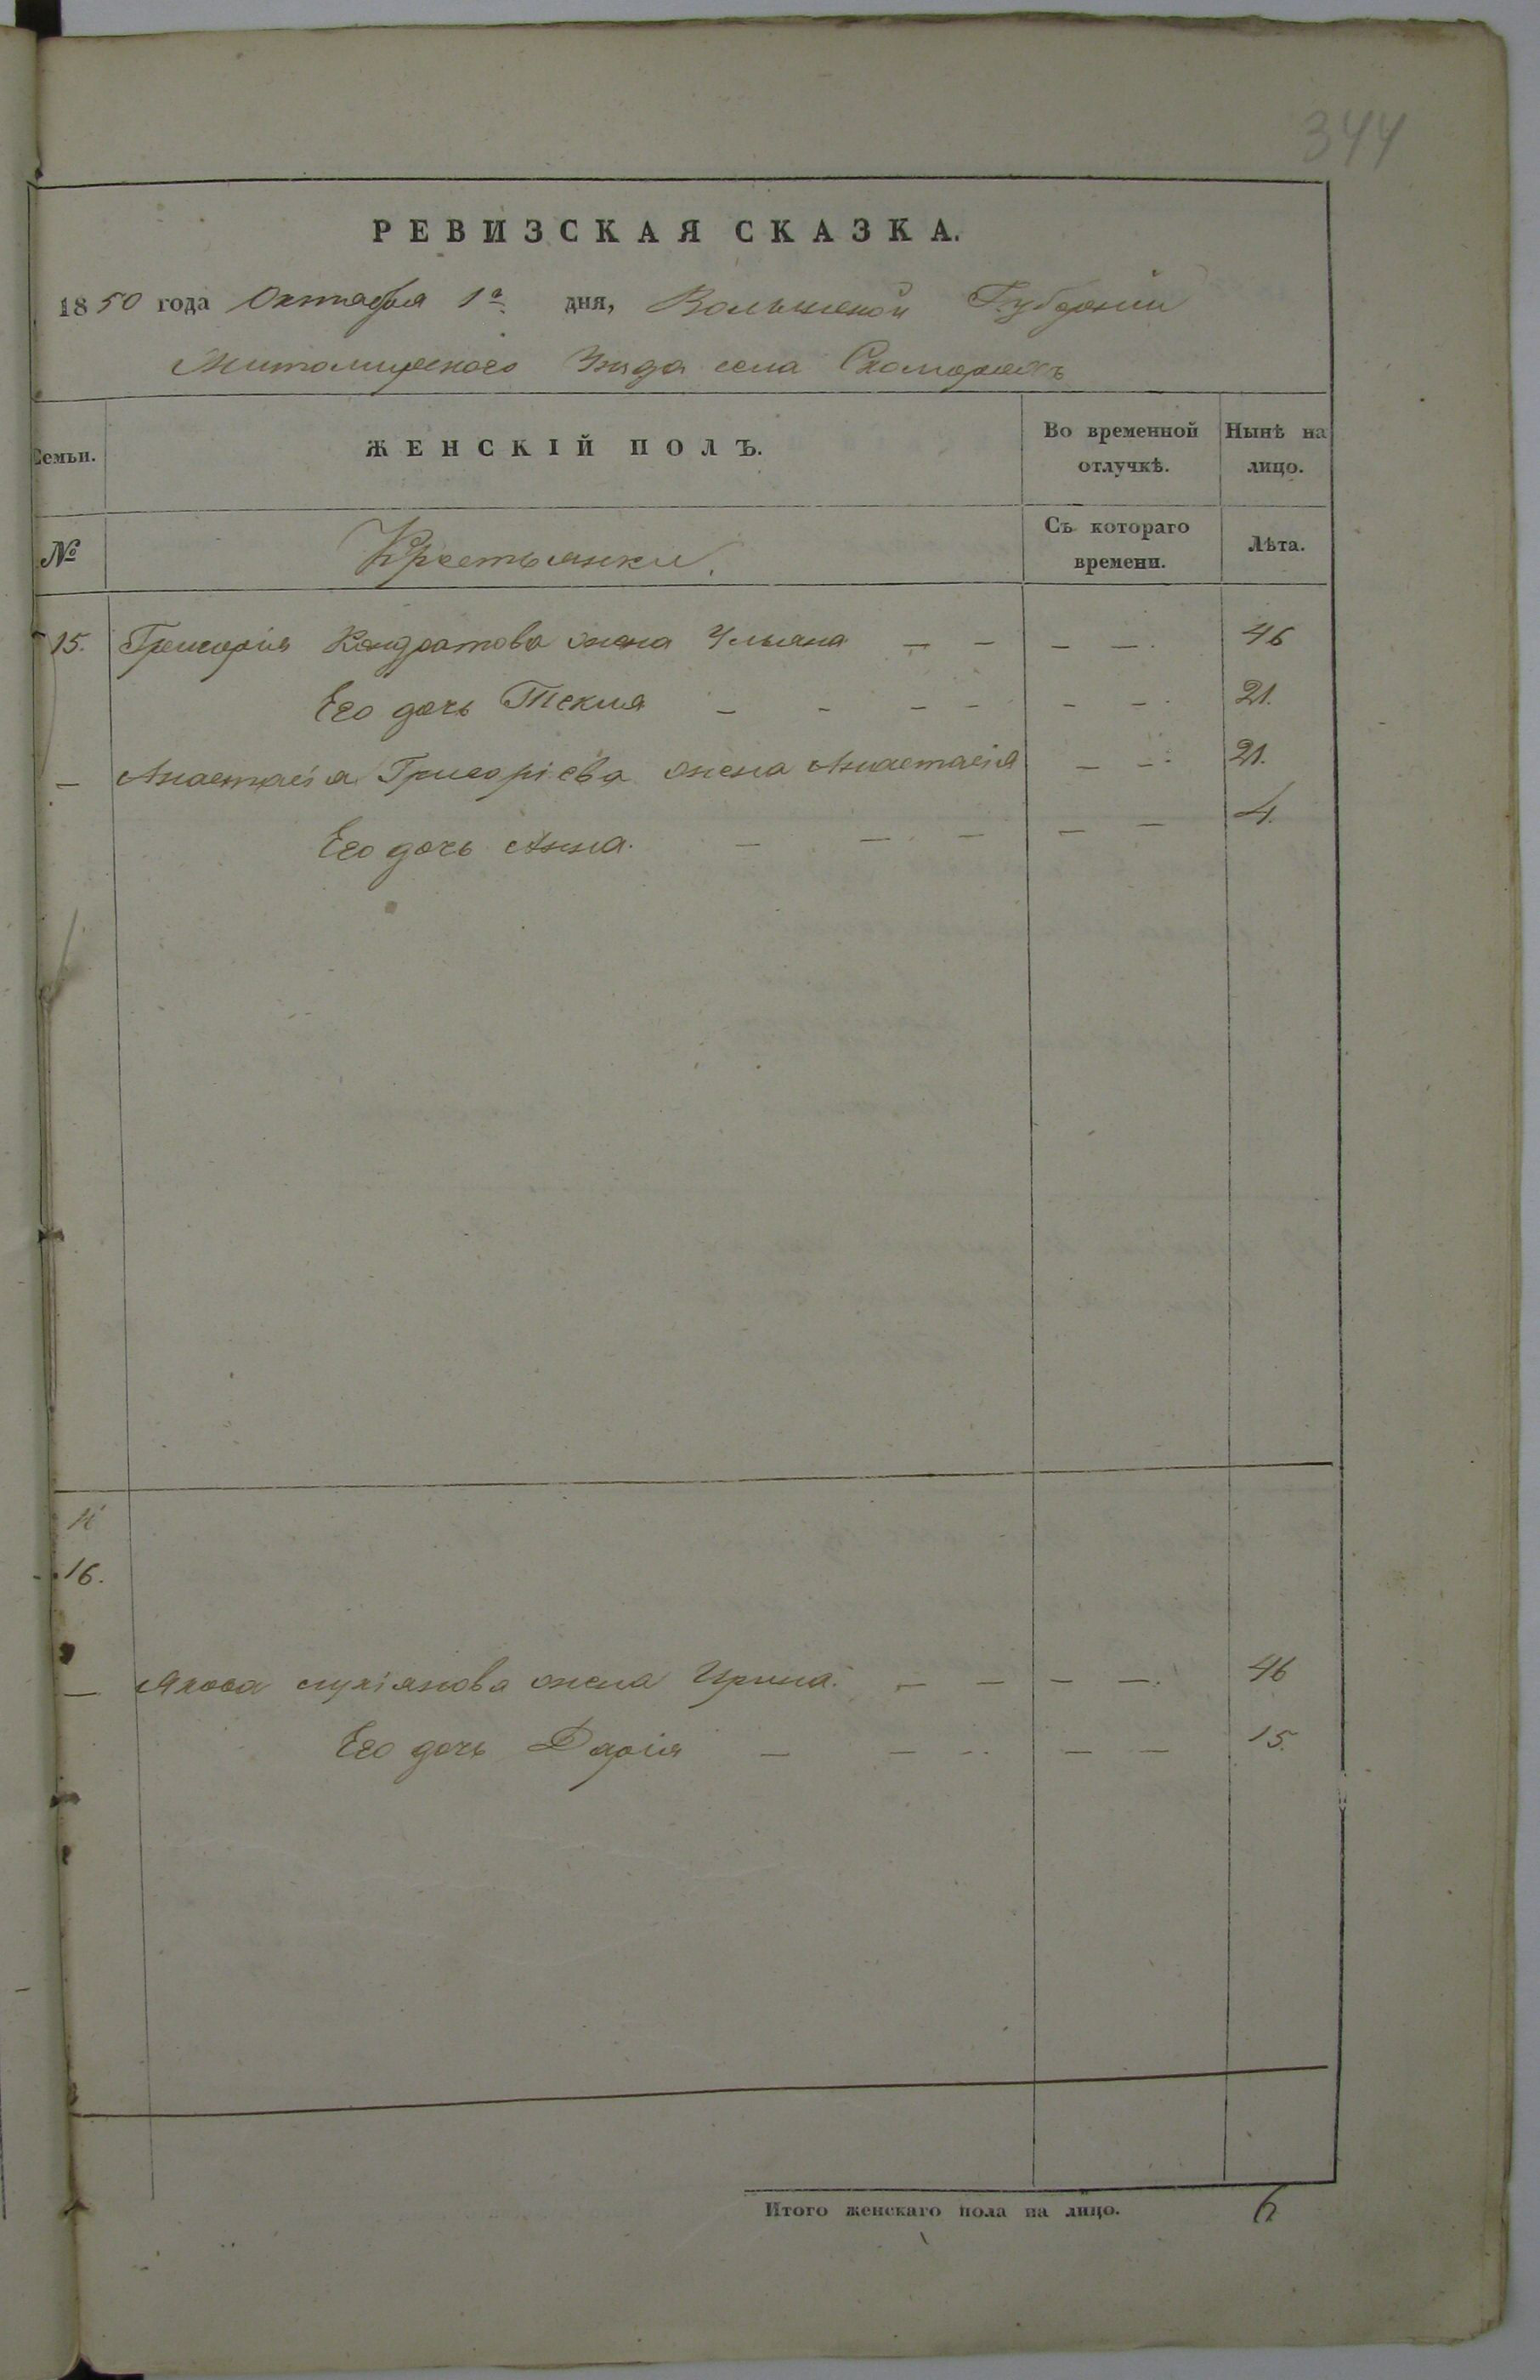 344
РЕВИЗСКАЯ СКАЗКА.
1850 года Октября 1го дня, Волынской Губернии
Житомирского Уезда села Скоморохъ
Семьи.
ЖЕНСКІЙ ПОЛЪ.
Во временной отлучкѣ.
Нынѣ на лицо.
№
Крестьянки.
Съ котораго времени.
Лѣта.
15. Григорія Кондратова жена Ульяна — — — —. 46
Его дочь Текля — - — - - -. 21.
— Анастасія Григоріева жена Анастасія — —. 21.
Его дочь Анна. — — — — — 4.
16.
— Якова лукіянова жена Ирина. — — — —. 46
Его дочь Дарія — — -- — — 15.
Итого женскаго пола на лицо. 6